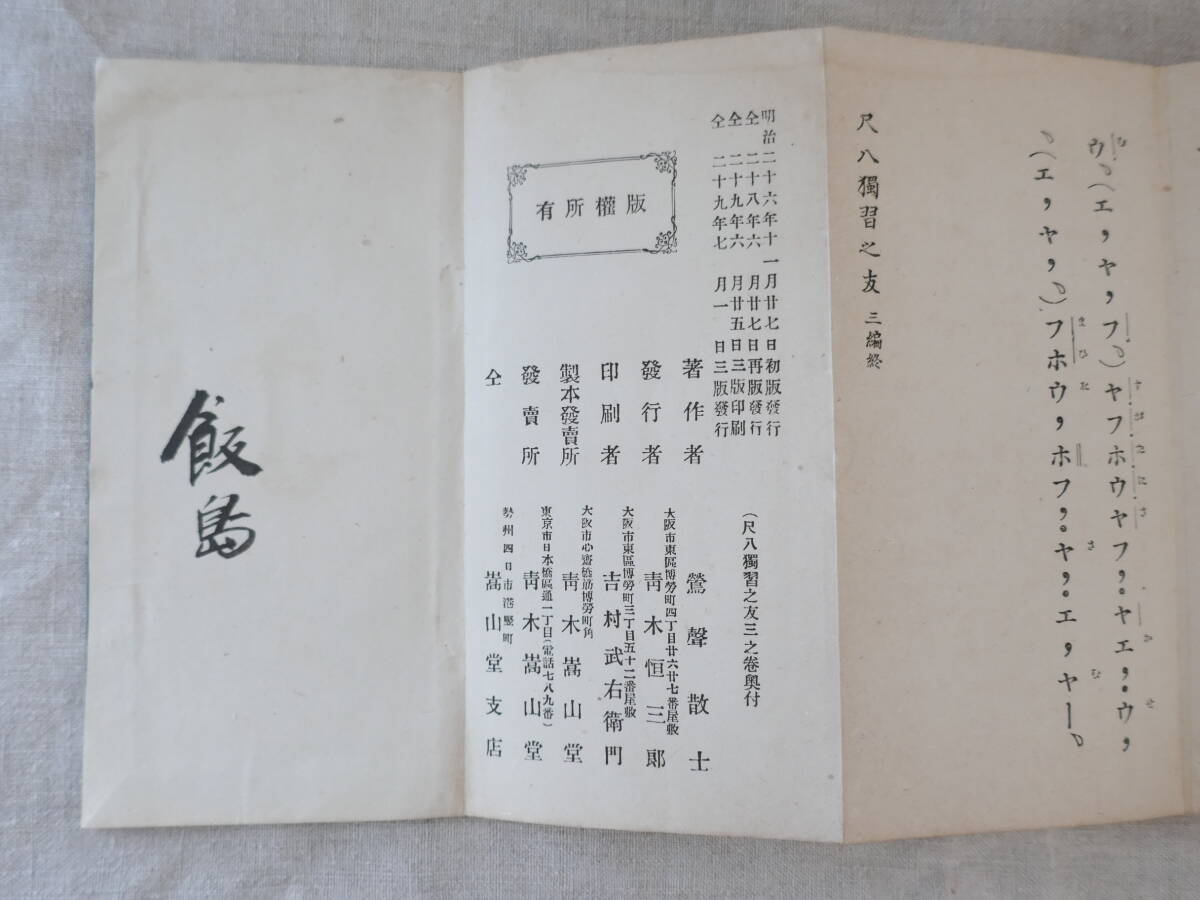 ウ(エ，ヤ，フ)ヤフホウヤフ，ヤエ，ウ，
(エ，ヤ，)フホウ，ホフ，ヤ，エ，ヤー
尺八獨習之友 三編終
(尺八獨習之友三之卷奧付)
明治二十六年十一月廿七日初版發行
仝 二十八年六月廿七日再版發行
仝 二十九年六月廿五日三版印刷
仝 二十九年七月一日三版發行
版權所有
著作者 鶯聲散士
大阪市東區博勞町四丁目廿六廿七番屋敷
發行者 靑木恒三郞
大阪市東區博勞町三丁目五十二番屋敷
印刷者 吉村武右衛門
大阪市心齋橋筋博勞町角
製本發賣所 靑木嵩山堂
東京市日本橋區通一丁目(電話七八九番)
發賣所 靑木嵩山堂
勢州四日市港竪町
仝 嵩山堂支店
飯島